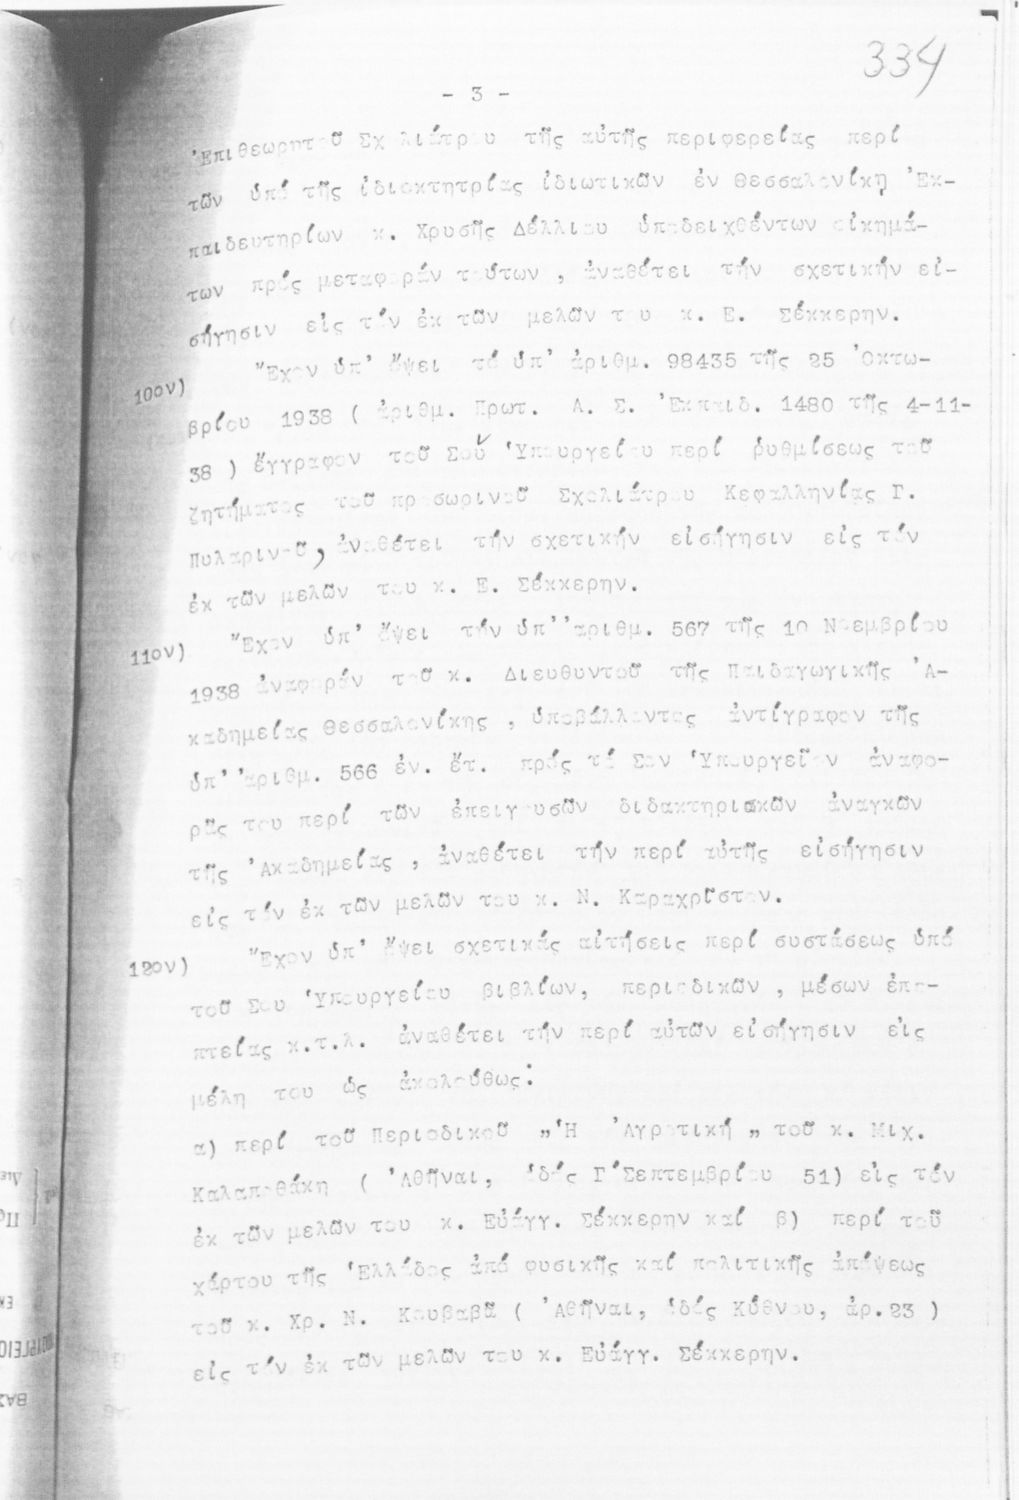 334
- 3 -
Ἐπιθεωρητοῦ Σχολιάτρου τῆς αὐτῆς περιφερείας περί
τῶν ὑπό τῆς ἰδιοκτητρίας ἰδιωτικῶν ἐν Θεσσαλονίκῃ Ἐκ-
παιδευτηρίων κ. Χρυσῆς Δέλλιου ὑποδειχθέντων οἰκημά-
των πρός μεταφοράν τούτων , ἀναθέτει τήν σχετικήν εἰ-
σήγησιν εἰς τόν ἐκ τῶν μελῶν του κ. Ε. Σέκκερην.
10ον) Ἔχον ὑπ' ὄψει τό ὑπ' ἀριθμ. 98435 τῆς 25 Ὀκτω-
βρίου 1938 ( ἀριθμ. Πρωτ. Α. Σ. Ἐκπαιδ. 1480 τῆς 4-11-
38 ) ἔγγραφον τοῦ Σοῦ Ὑπουργείου περί ῥυθμίσεως τοῦ
ζητήματος τοῦ προσωρινοῦ Σχολιάτρου Κεφαλληνίας Γ.
Πυλαρινοῦ, ἀναθέτει τήν σχετικήν εἰσήγησιν εἰς τόν
ἐκ τῶν μελῶν του κ. Ε. Σέκκερην.
11ον) Ἔχον ὑπ' ὄψει τήν ὑπ' ἀριθμ. 567 τῆς 10 Νοεμβρίου
1938 ἀναφοράν τοῦ κ. Διευθυντοῦ τῆς Παιδαγωγικῆς Ἀ-
καδημείας Θεσσαλονίκης , ὑποβάλλοντος ἀντίγραφον τῆς
ὑπ' ἀριθμ. 566 ἐν. ἔτ. πρός τό Σον Ὑπουργεῖον ἀναφο-
ρᾶς του περί τῶν ἐπειγουσῶν διδακτηριακῶν ἀναγκῶν
τῆς Ἀκαδημείας , ἀναθέτει τήν περί αὐτῆς εἰσήγησιν
εἰς τόν ἐκ τῶν μελῶν του κ. Ν. Καραχρῖστον.
12ον) Ἔχον ὑπ' ὄψει σχετικάς αἰτήσεις περί συστάσεως ὑπό
τοῦ Σου Ὑπουργείου βιβλίων, περιοδικῶν , μέσων ἐπο-
πτείας κ.τ.λ. ἀναθέτει τήν περί αὐτῶν εἰσήγησιν εἰς
μέλη του ὡς ἀκολούθως:
α) περί τοῦ Περιοδικοῦ „Ἡ Ἀγροτική „ τοῦ κ. Μιχ.
Καλαποθάκη ( Ἀθῆναι, ὁδός Γ΄Σεπτεμβρίου 51) εἰς τόν
ἐκ τῶν μελῶν του κ. Εὐάγγ. Σέκκερην καί β) περί τοῦ
χάρτου τῆς Ἑλλάδος ἀπό φυσικῆς καί πολιτικῆς ἀπόψεως
τοῦ κ. Χρ. Ν. Κουβαβᾶ ( Ἀθῆναι, ὁδός Κύθνου, ἀρ.23 )
εἰς τόν ἐκ τῶν μελῶν του κ. Εὐάγγ. Σέκκερην.